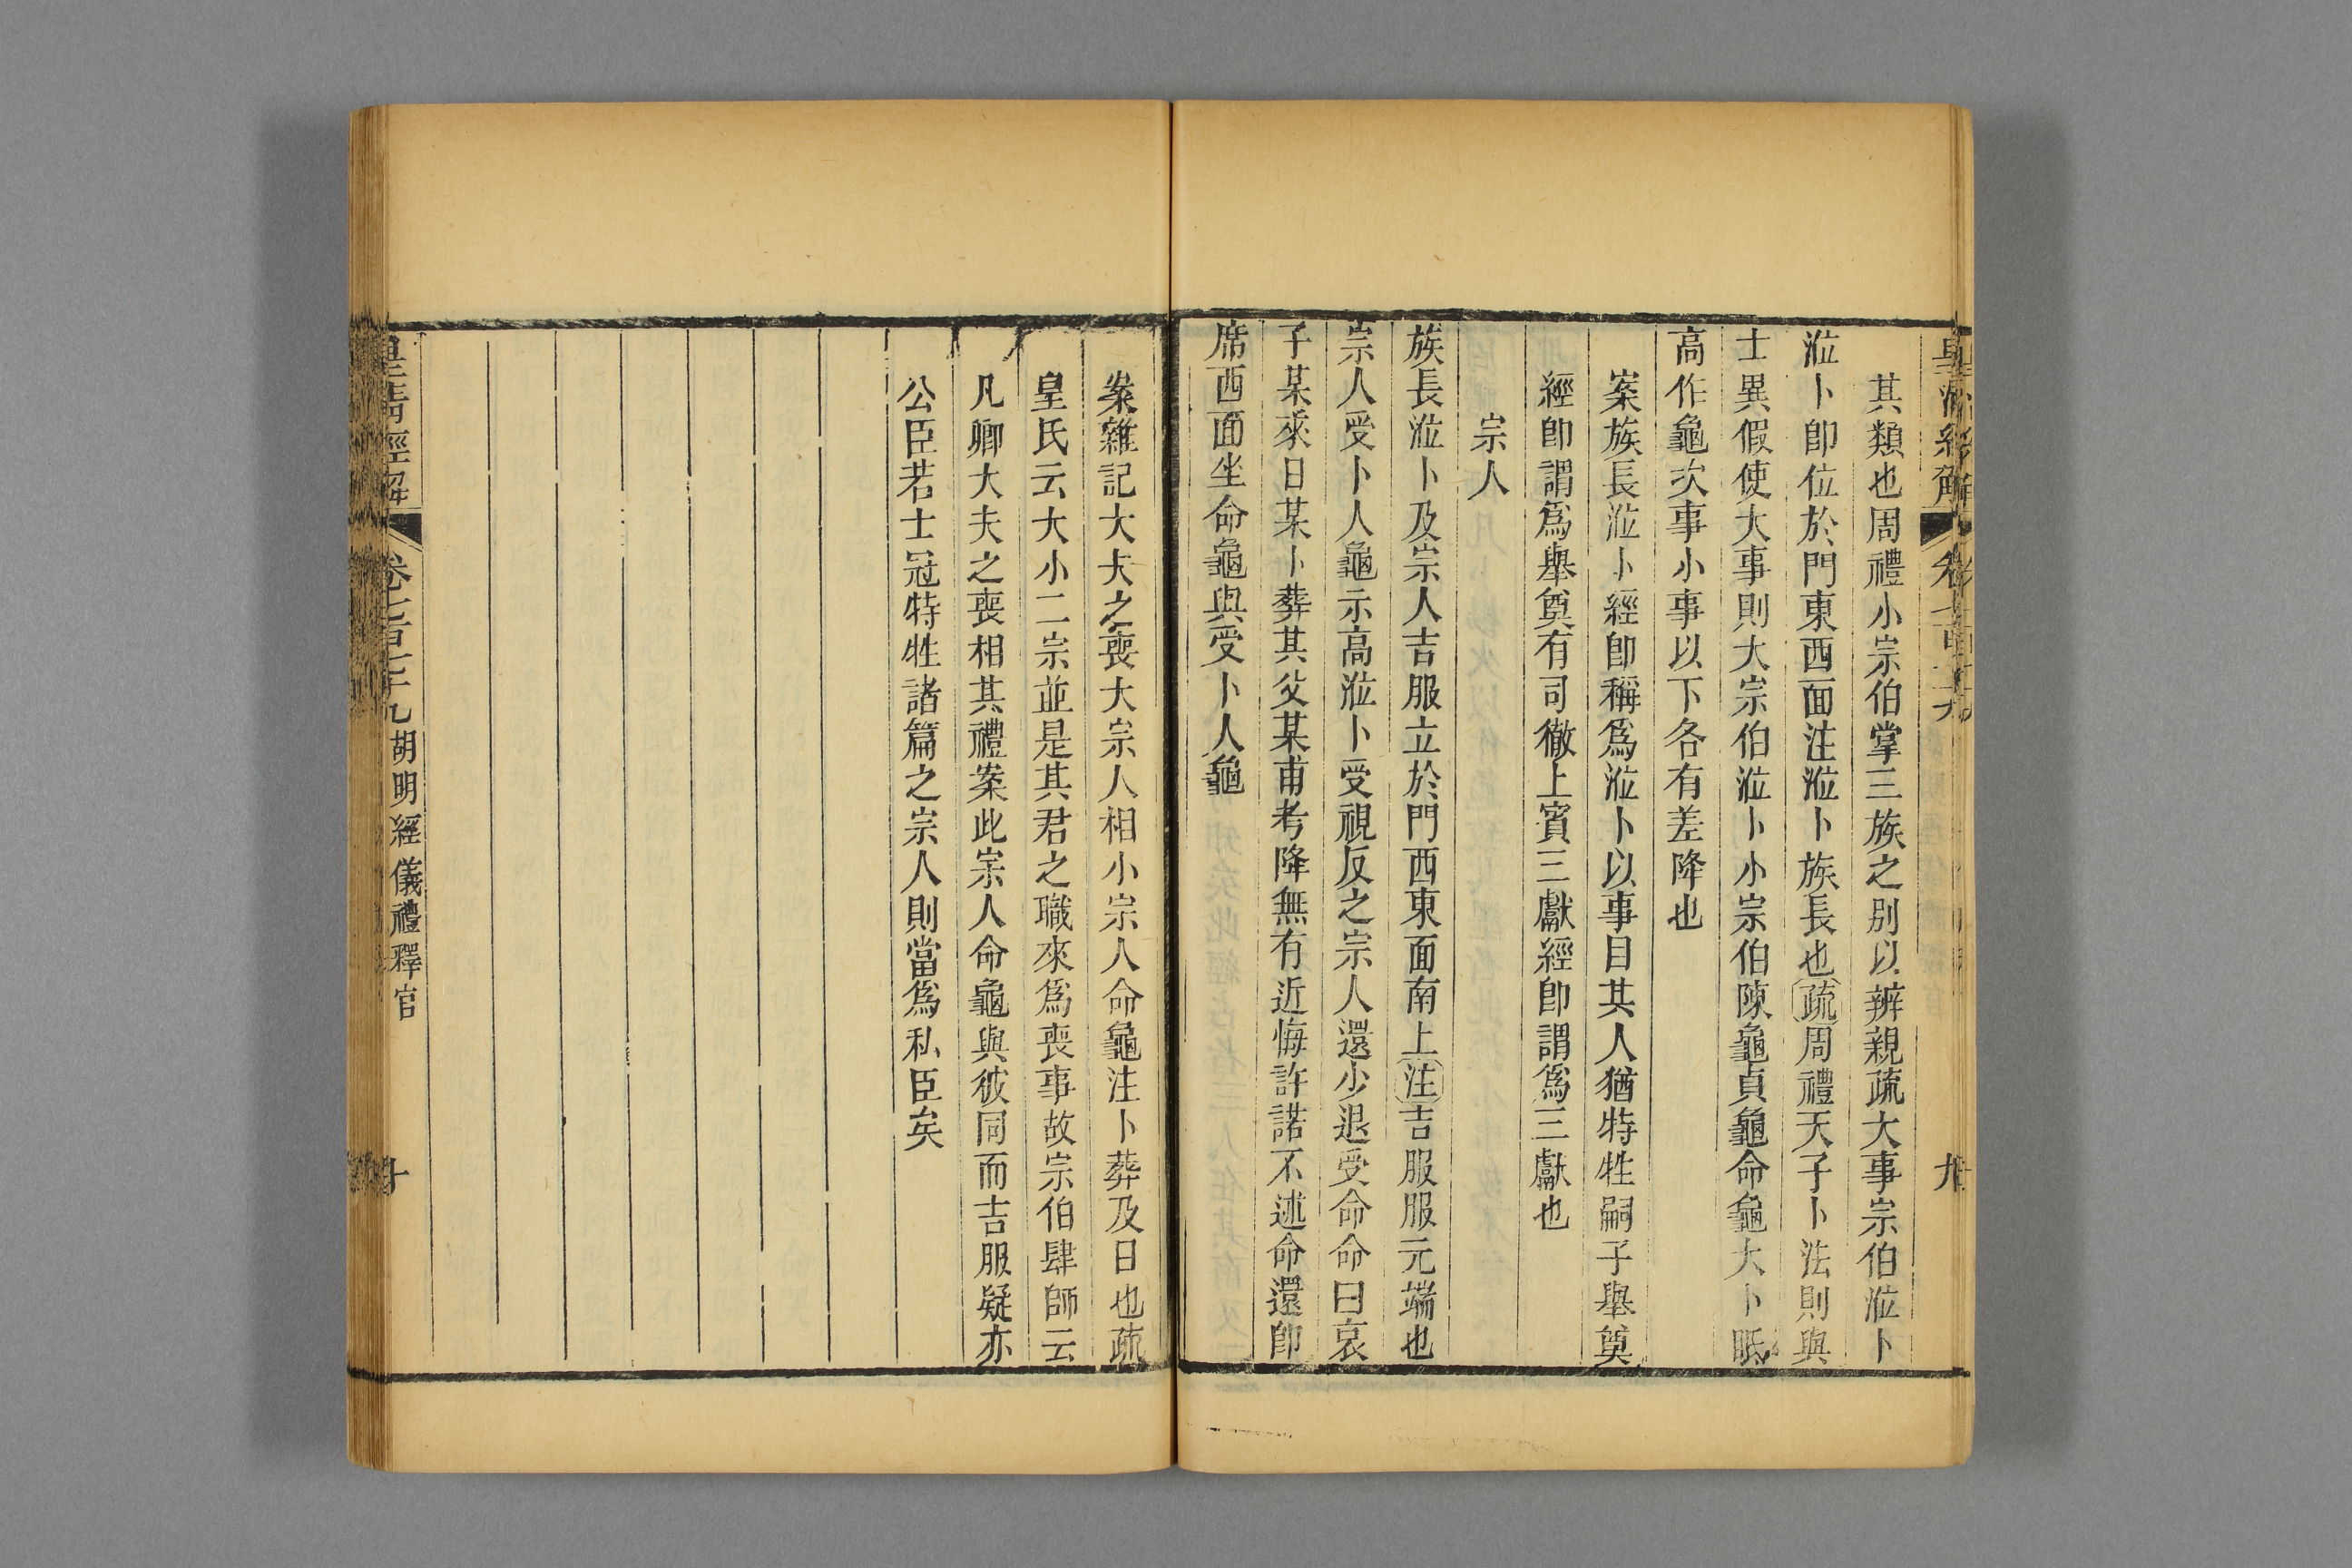 其類也周禮小宗伯掌三族之別以辨親疏大事宗伯涖卜
涖卜卽位於門東西面注涖卜族長也疏周禮天子卜法則與
士異假使大事則大宗伯涖卜小宗伯陳龜貞龜命龜大卜眡
高作龜次事小事以下各有差降也
案族長涖卜經卽稱爲涖卜以事目其人猶特牲嗣子舉奠
經卽謂爲舉奠有司徹上賓三獻經卽謂爲三獻也
宗人
族長涖卜及宗人吉服立於門西東面南上注吉服服元端也
宗人受卜人龜示高涖卜受視反之宗人還少退受命命曰哀
子某來日某卜葬其父某甫考降無有近悔許諾不述命還卽
席西面坐命龜與受卜人龜
案雜記大夫之喪大宗人相小宗人命龜注卜葬及日也疏
皇氏云大小二宗並是其君之職來爲喪事故宗伯肆師云
凡卿大夫之喪相其禮案此宗人命龜與彼同而吉服疑亦
公臣若士冠特牲諸篇之宗人則當爲私臣矣
皇清經解 卷七百七十九 胡明經儀禮釋官 十